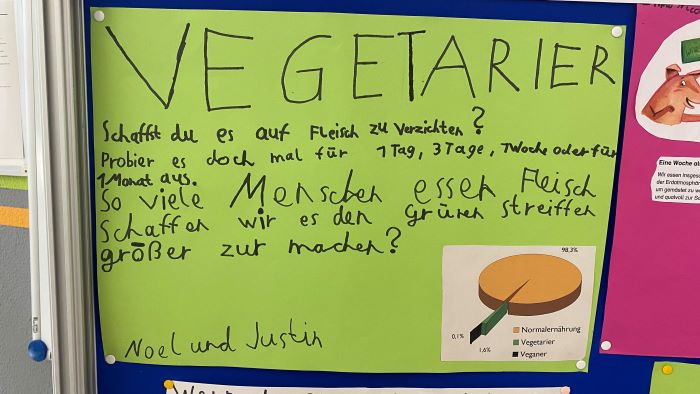 VEGETARIER
Schaffst du es auf Fleisch zu verzichten?
Probier es doch mal für 1 Tag, 3 Tage, 1 Woche oder für
1 Monat aus.
So viele Menschen essen Fleisch
schaffen wir es den grünen streiffen
größer zur machen?
98,3%
0,1%
1,6%
Normalernährung
Vegetarier
Veganer
Noel und Justin
Eine Woche als
Wir essen insges
der Erdatmosphär
um gemästet zu w
und qualvoll zur Sc